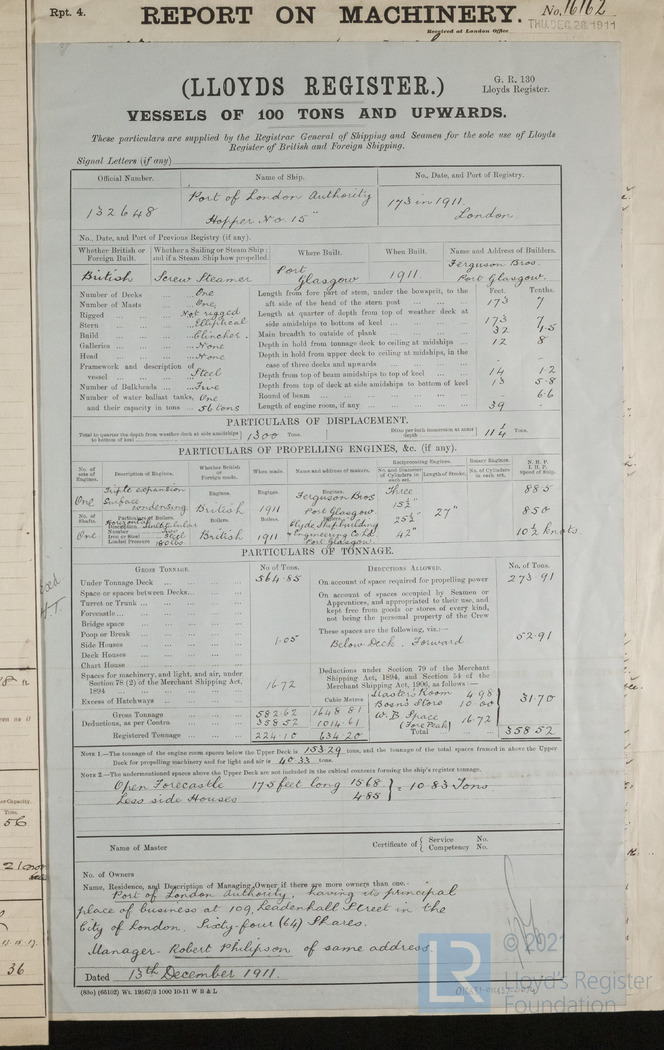 Rpt. 4.
REPORT ON MACHINERY.
No. 16162
Received at London Office
THU. DEC. 28 1911
(LLOYDS REGISTER.)
G. R. 130
Lloyds Register.
VESSELS OF 100 TONS AND UPWARDS.
These particulars are supplied by the Registrar General of Shipping and Seamen for the sole use of Lloyds
Register of British and Foreign Shipping.
Signal Letters (if any)
Official Number. Name of Ship. No., Date, and Port of Registry.
132648 Port of London Authority Hopper No. 15" 173 in 1911 London
No., Date, and Port of Previous Registry (if any).
Whether British or Foreign Built. Whether a Sailing or Steam Ship; and if a Steam Ship how propelled. Where Built. When Built. Name and Address of Builders.
British Screw Steamer Port Glasgow 1911. Ferguson Bros. Port Glasgow.
Feet. Tenths.
Number of Decks One
Number of Masts One
Rigged Not rigged
Stern Elliptical
Build Clincher.
Galleries None
Head None
Framework and description of vessel Steel
Number of Bulkheads Five
Number of water ballast tanks, One
and their capacity in tons 56 tons
Length from fore part of stem, under the bowsprit, to the aft side of the head of the stern post 173 7
Length at quarter of depth from top of weather deck at side amidships to bottom of keel 173 7
Main breadth to outside of plank 32 1.5
Depth in hold from tonnage deck to ceiling at midships 12 8
Depth in hold from upper deck to ceiling at midships, in the case of three decks and upwards - -
Depth from top of beam amidships to top of keel 14 1.2
Depth from top of deck at side amidships to bottom of keel 13 5.8
Round of beam - 6.6
Length of engine room, if any 39 -
PARTICULARS OF DISPLACEMENT.
Total to quarter the depth from weather deck at side amidships to bottom of keel 1300 Tons. Ditto per inch immersion at same depth 11¼ Tons.
PARTICULARS OF PROPELLING ENGINES, &c. (if any).
No. of sets of Engines. Description of Engines. Whether British or Foreign made. When made. Name and address of makers. Reciprocating Engines. No. and Diameter of Cylinders in each set. Length of Stroke. Rotary Engines. No. of Cylinders in each set. N. H. P. I. H. P. Speed of Ship.
One Triple expansion Surface condensing Engines. British Engines. 1911 Engines. Ferguson Bros Port Glasgow. Three 15½" 25½" 42" 27" 88.5 850 10½ knots
No. of Shafts. Particulars of Boilers. Boilers. Boilers. Boilers.
One Description Horizontal Multitubular
Number Two
Iron or Steel Steel
Loaded Pressure 180 lbs
British 1911 Clyde Shipbuilding & Engineering Co Ld. Port Glasgow
PARTICULARS OF TONNAGE.
GROSS TONNAGE. No of Tons.
Under Tonnage Deck 564.85
Space or spaces between Decks
Turret or Trunk
Forecastle
Bridge space
Poop or Break
Side Houses 1.05
Deck Houses
Chart House
Spaces for machinery, and light, and air, under Section 78 (2) of the Merchant Shipping Act, 1894 16.72
Excess of Hatchways
Cubic Metres
Gross Tonnage 582.62 1648.81
Deductions, as per Contra 358.52 1014.61
Registered Tonnage 224.10 634.20
DEDUCTIONS ALLOWED. No. of Tons.
On account of space required for propelling power 273.91
On account of spaces occupied by Seamen or Apprentices, and appropriated to their use, and kept free from goods or stores of every kind, not being the personal property of the Crew
These spaces are the following, viz.:—
Below Deck. Forward 52.91
Deductions under Section 79 of the Merchant Shipping Act, 1894, and Section 54 of the Merchant Shipping Act, 1906, as follows—
Master's Room 4.98
Bosn's Store 10.00
W. B. Space (Fore Peak) 16.72
31.70
Total 358.52
NOTE 1.—The tonnage of the engine room spaces below the Upper Deck is 153.29 tons, and the tonnage of the total spaces framed in above the Upper
Deck for propelling machinery and for light and air is 40.33 tons.
NOTE 2.—The undermentioned spaces above the Upper Deck are not included in the cubical contents forming the ship's register tonnage.
Open Forecastle 17.5 feet long 15.68
Less side Houses 4.85 } = 10.83 Tons
Name of Master
Certificate of { Service No.
Competency No.
No. of Owners
Name, Residence, and Description of Managing Owner if there are more owners than one.
Port of London Authority, having its principal
place of business at 109, Leadenhall Street in the
City of London, Sixty-four (64) Shares.
Manager - Robert Philipson of same address.
Dated 13th December 1911.
(83o) (65102) Wt. 19567/3 1000 10-11 W B & L
© 2021
LR
Lloyd's Register
Foundation
er Capacity.
Tons.
56
36